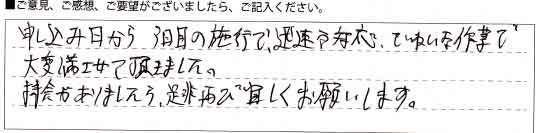 ■ご意見、ご感想、ご要望がございましたら、ご記入ください。
申し込み日から3日目の施行で、迅速な対応、ていねいな作業で
大変満足させて頂きました。
機会がありましたら、是非再び宜しくお願いします。